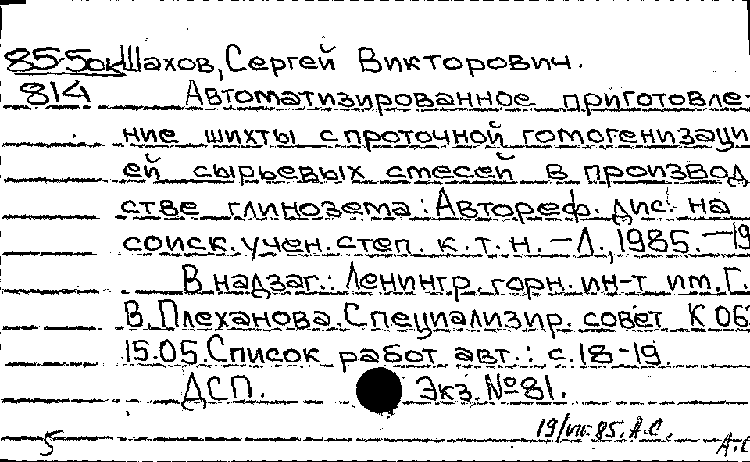 85-5ок Шахов, Сергей Викторович.
814 Автоматизированное приготовле-
ние шихты с проточной гомогенизаци
ей сырьевых смесей в производ
стве глинозема: Автореф. дис. на
соиск. учен. степ. к.т.н. – Л., 1985. – 19
В надзаг.: Ленингр. горн. ин-т им. Г.
В. Плеханова. Специализир. совет К 06
15.05. Список работ авт.: с. 18-19.
ДСП. Экз. №81.
19/VII.85. А.С.
5 А.С